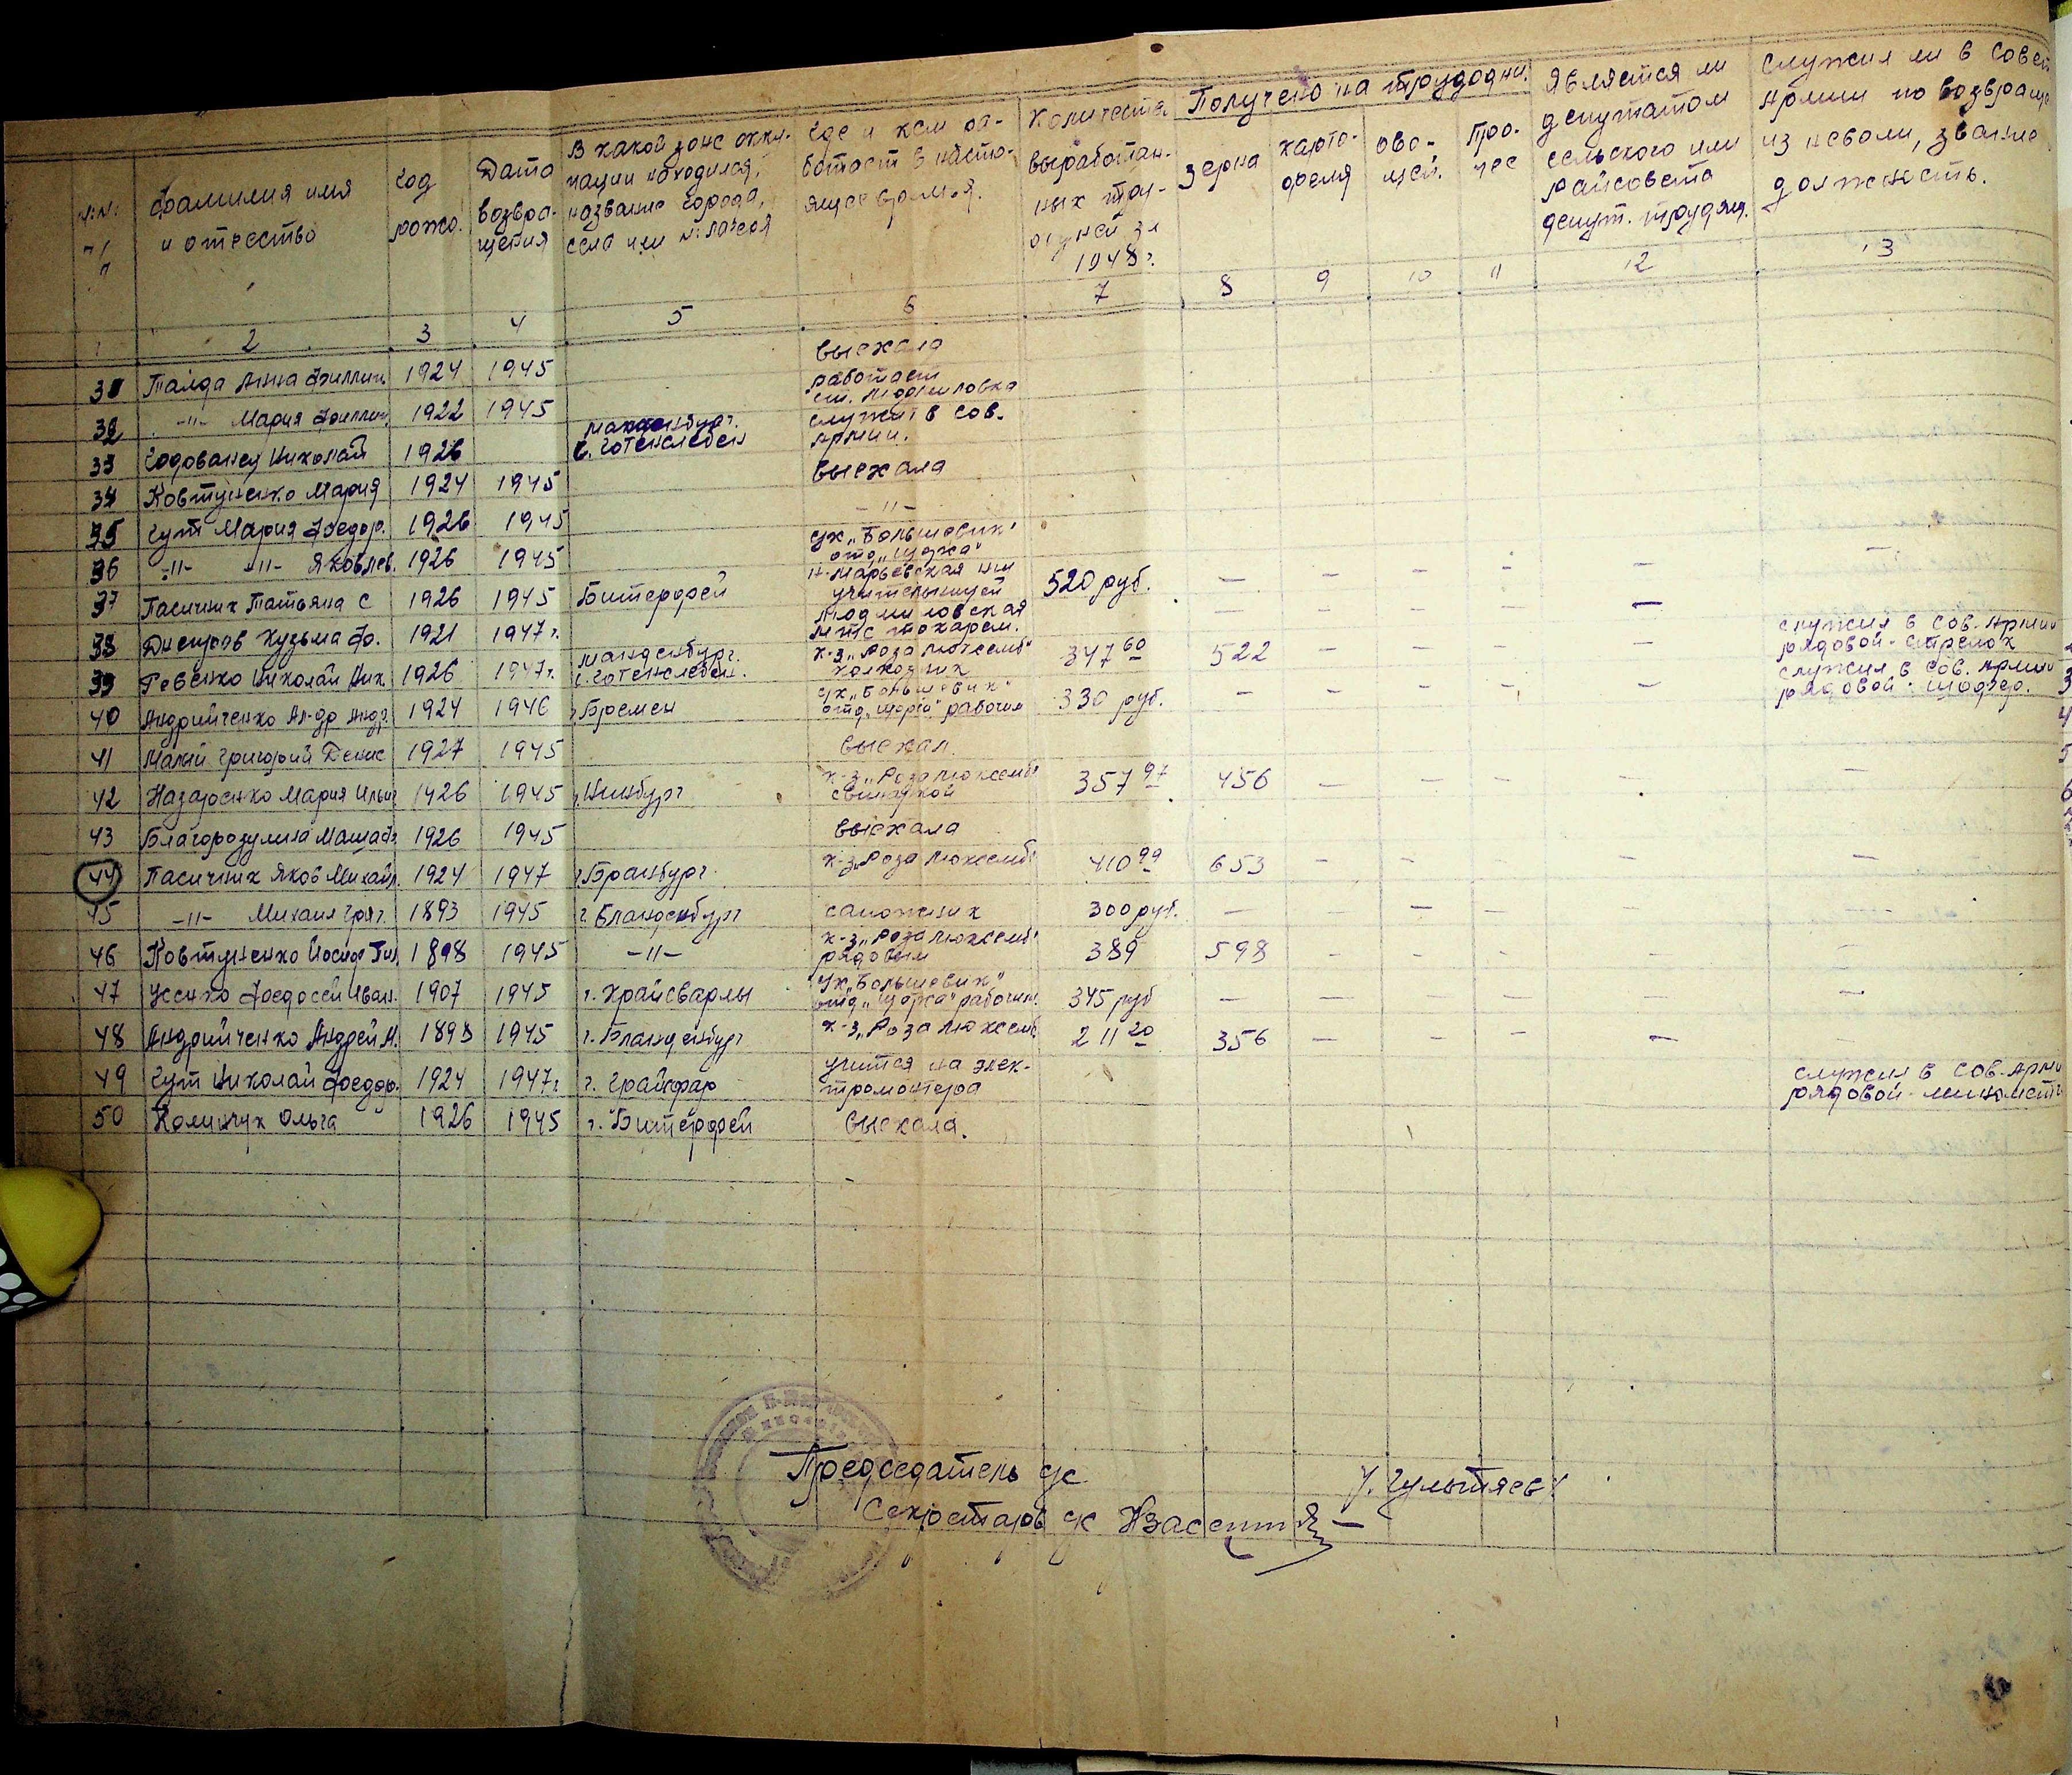 №№ п/п
Фамилия имя и отчество
Год рожд.
Дата возвращения
В какой зоне оккупации находился, название города, села или № лагеря
Где и кем работает в настоящее время.
Количество выработанных трудодней за 1948 г.
Получено на трудодни.
зерна
картофеля
овощей.
прочее
Является ли депутатом сельского или райсовета депут. трудящ.
Служил ли в Совет Армии по возвращ из неволи, звание должность.
2 3 4 5 6 7 8 9 10 11 12 13
31 Талда Анна Филлип. 1924 1945 выехала
32 -"- Мария Филлип. 1922 1945 работает ст. Людмиловка
33 Годованец Николай 1926 Магденбург. с. Готенслебен служит в Сов. Армии.
34 Ковтуненко Мария 1924 1945 выехала
35 Гут Мария Федор. 1926 1945 -"-
36 -"- -"- Яковлев. 1926 1945 ук "Большевик" отд "Щорса"
37 Пасичник Татьяна С 1926 1945 Битерфей Н-Марьевская нш учительницей 520 руб. — — — — —
38 Днепров Кузьма Ф. 1921 1947 г. Людмиловская МТС токарем. — — — — — служил в Сов. Армии рядовой-стрелок
39 Ревенко Николай Ник 1926 1947 г. Магденбург. с. Готенслебен. к-з "Роза Люксемб" колхозник 347 60 522 — — — — служил в Сов. Армии рядовой-шофер.
40 Андрийченко Ал-др Андр. 1924 1946 г Бремен ук "Большевик" отд "Щорса" рабочим 330 руб. — — — — —
41 Малий Григорий Денис 1927 1945 выехал.
42 Назаренко Мария Ильи 1926 1945 г. Нинбург к-з "Роза Люксемб" свинаркой 357 97 456 — — — — —
43 Благоразумина Маша 1926 1945 выехала
44 Пасичник Яков Михайл. 1924 1947 г. Бранбург. к-з "Роза Люксемб" 410 99 653 — — — — —
45 -"- Михаил Григ. 1893 1945 г. Бланденбург сапожник 300 руб. — — — — — —
46 Ковтуненко Йосиф 1898 1945 -"- к-з "Роза Люксемб" рядовым 389 598 — — — — —
47 Усенко Феодосей Иван. 1907 1945 г. Крайсварлы ук "Большевик" отд "Щорса" рабочим. 345 руб — — — — — —
48 Андрийченко Андрей М. 1893 1945 г. Бланденбург к-з "Роза Люксемб 211 20 356 — — — — —
49 Гут Николай Федор. 1924 1947 г г. Грайфар учится на электромонтера служил в Сов. Арми рядовой-миномет
50 Колинчук Ольга 1926 1945 г. Битерфей выехала.
Председатель с/с
Гультяев
Секретарь с/с